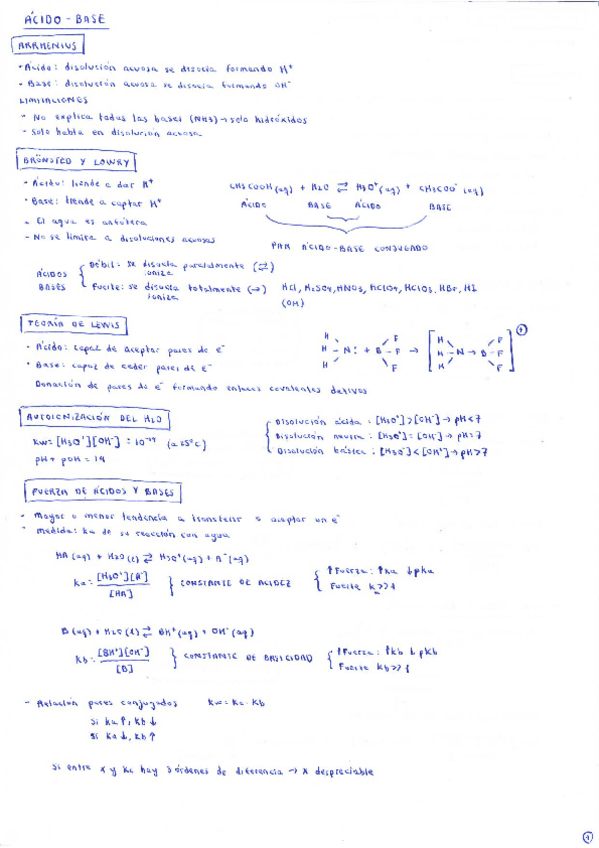 ÁCIDO - BASE
ARRHENIUS
• Ácido: disolución acuosa se disocia formando H⁺
• Base: disolución acuosa se disocia formando OH⁻
LIMITACIONES
- No explica todas las bases (NH3) → solo hidróxidos
- Solo habla en disolución acuosa
BRÖNSTED Y LOWRY
• Ácido: tiende a dar H⁺
• Base: tiende a captar H⁺
• El agua es anfótera
- No se limita a disoluciones acuosas
CH3COOH (aq) + H2O ⇄ H3O⁺ (aq) + CH3COO⁻ (aq)
ÁCIDO BASE ÁCIDO BASE
PAR ÁCIDO-BASE CONJUGADO
ÁCIDOS BASES
Débil: se disocia parcialmente (⇄)
ioniza
Fuerte: se disocia totalmente (→) HCl, H2SO4, HNO3, HClO4, HClO3, HBr, HI
ioniza (OH)
TEORÍA DE LEWIS
• Ácido: capaz de aceptar pares de e⁻
• Base: capaz de ceder pares de e⁻
Donación de pares de e⁻ formando enlaces covalentes dativos
H F H F
H - N: + B - F → H - N → B - F
H F H F
AUTOIONIZACIÓN DEL H2O
Kw = [H3O⁺][OH⁻] = 10⁻¹⁴ (a 25°C)
pH + pOH = 14
Disolución ácida: [H3O⁺] > [OH⁻] → pH < 7
Disolución neutra: [H3O⁺] = [OH⁻] → pH = 7
Disolución básica: [H3O⁺] < [OH⁻] → pH > 7
FUERZA DE ÁCIDOS Y BASES
• Mayor o menor tendencia a transferir o aceptar un e⁻
• Medida: Ka de su reacción con agua
HA (aq) + H2O (l) ⇄ H3O⁺ (aq) + A⁻ (aq)
Ka = [H3O⁺][A⁻] / [HA] } CONSTANTE DE ACIDEZ
↑ Fuerza: ↑ Ka ↓ pKa
Fuerte K >> 1
B (aq) + H2O (l) ⇄ BH⁺ (aq) + OH⁻ (aq)
Kb = [BH⁺][OH⁻] / [B] } CONSTANTE DE BASICIDAD
↑ Fuerza: ↑ Kb ↓ pKb
Fuerte Kb >> 1
- Relación pares conjugados Kw = Ka · Kb
Si Ka ↑, Kb ↓
Si Ka ↓, Kb ↑
Si entre x y Ka hay 3 órdenes de diferencia → x despreciable
1